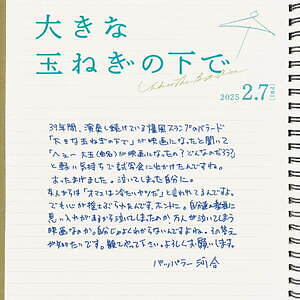 大きな
玉ねぎの下で
Under The Big Onion
2025 2.7 [FRI]
39年間、演奏し続けている爆風スランプのバラード
「大きな玉ねぎの下で」が映画になったと聞いて
「へぇー 大玉(曲名)が映画になったの? どんなのだろう?」
と軽い気持ちで試写会に出かけたんですね。
おったまげました。泣いてしまった自分に。
友人からは「オマエは冷たいヤツだ」と言われてるんですよ。
でも心が揺さぶられたんです、ホントに。自分達の楽曲に
思い入れがあるから泣いてしまったのか 万人が泣いてしまう
映画なのか。自分じゃよくわからないんですよね。その答え
が知りたいです。観て下さい。よろしくお願いします。
パッパラー河合